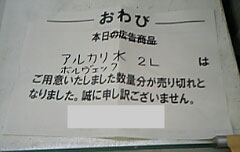 おわび
本日の広告商品
アルカリ水 2L は
ボルヴィック
ご用意いたしました数量分が売り切れと
なりました。誠に申し訳ございません。